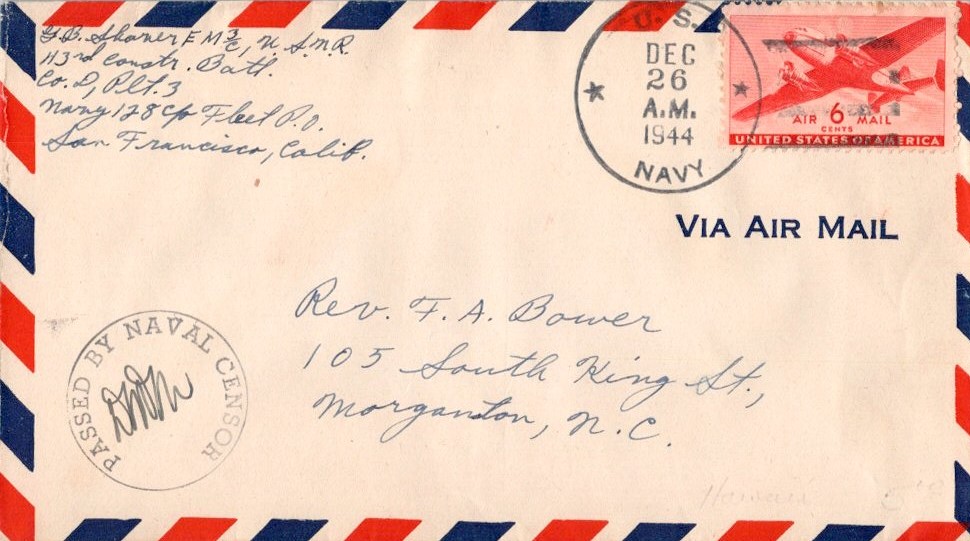 G.B. Shaver E M 3/c, U.S.N.R.
43rd Constr. Batt.
Co. D, Plt. 3
Navy 128 c/o Fleet P.O.
San Francisco, Calif.
U.S.
DEC
26
A.M.
1944
NAVY
AIR 6 MAIL
CENTS
UNITED STATES OF AMERICA
VIA AIR MAIL
Rev. F. A. Bower
105 South King St.,
Morganton, N.C.
PASSED BY NAVAL CENSOR
Hawaii